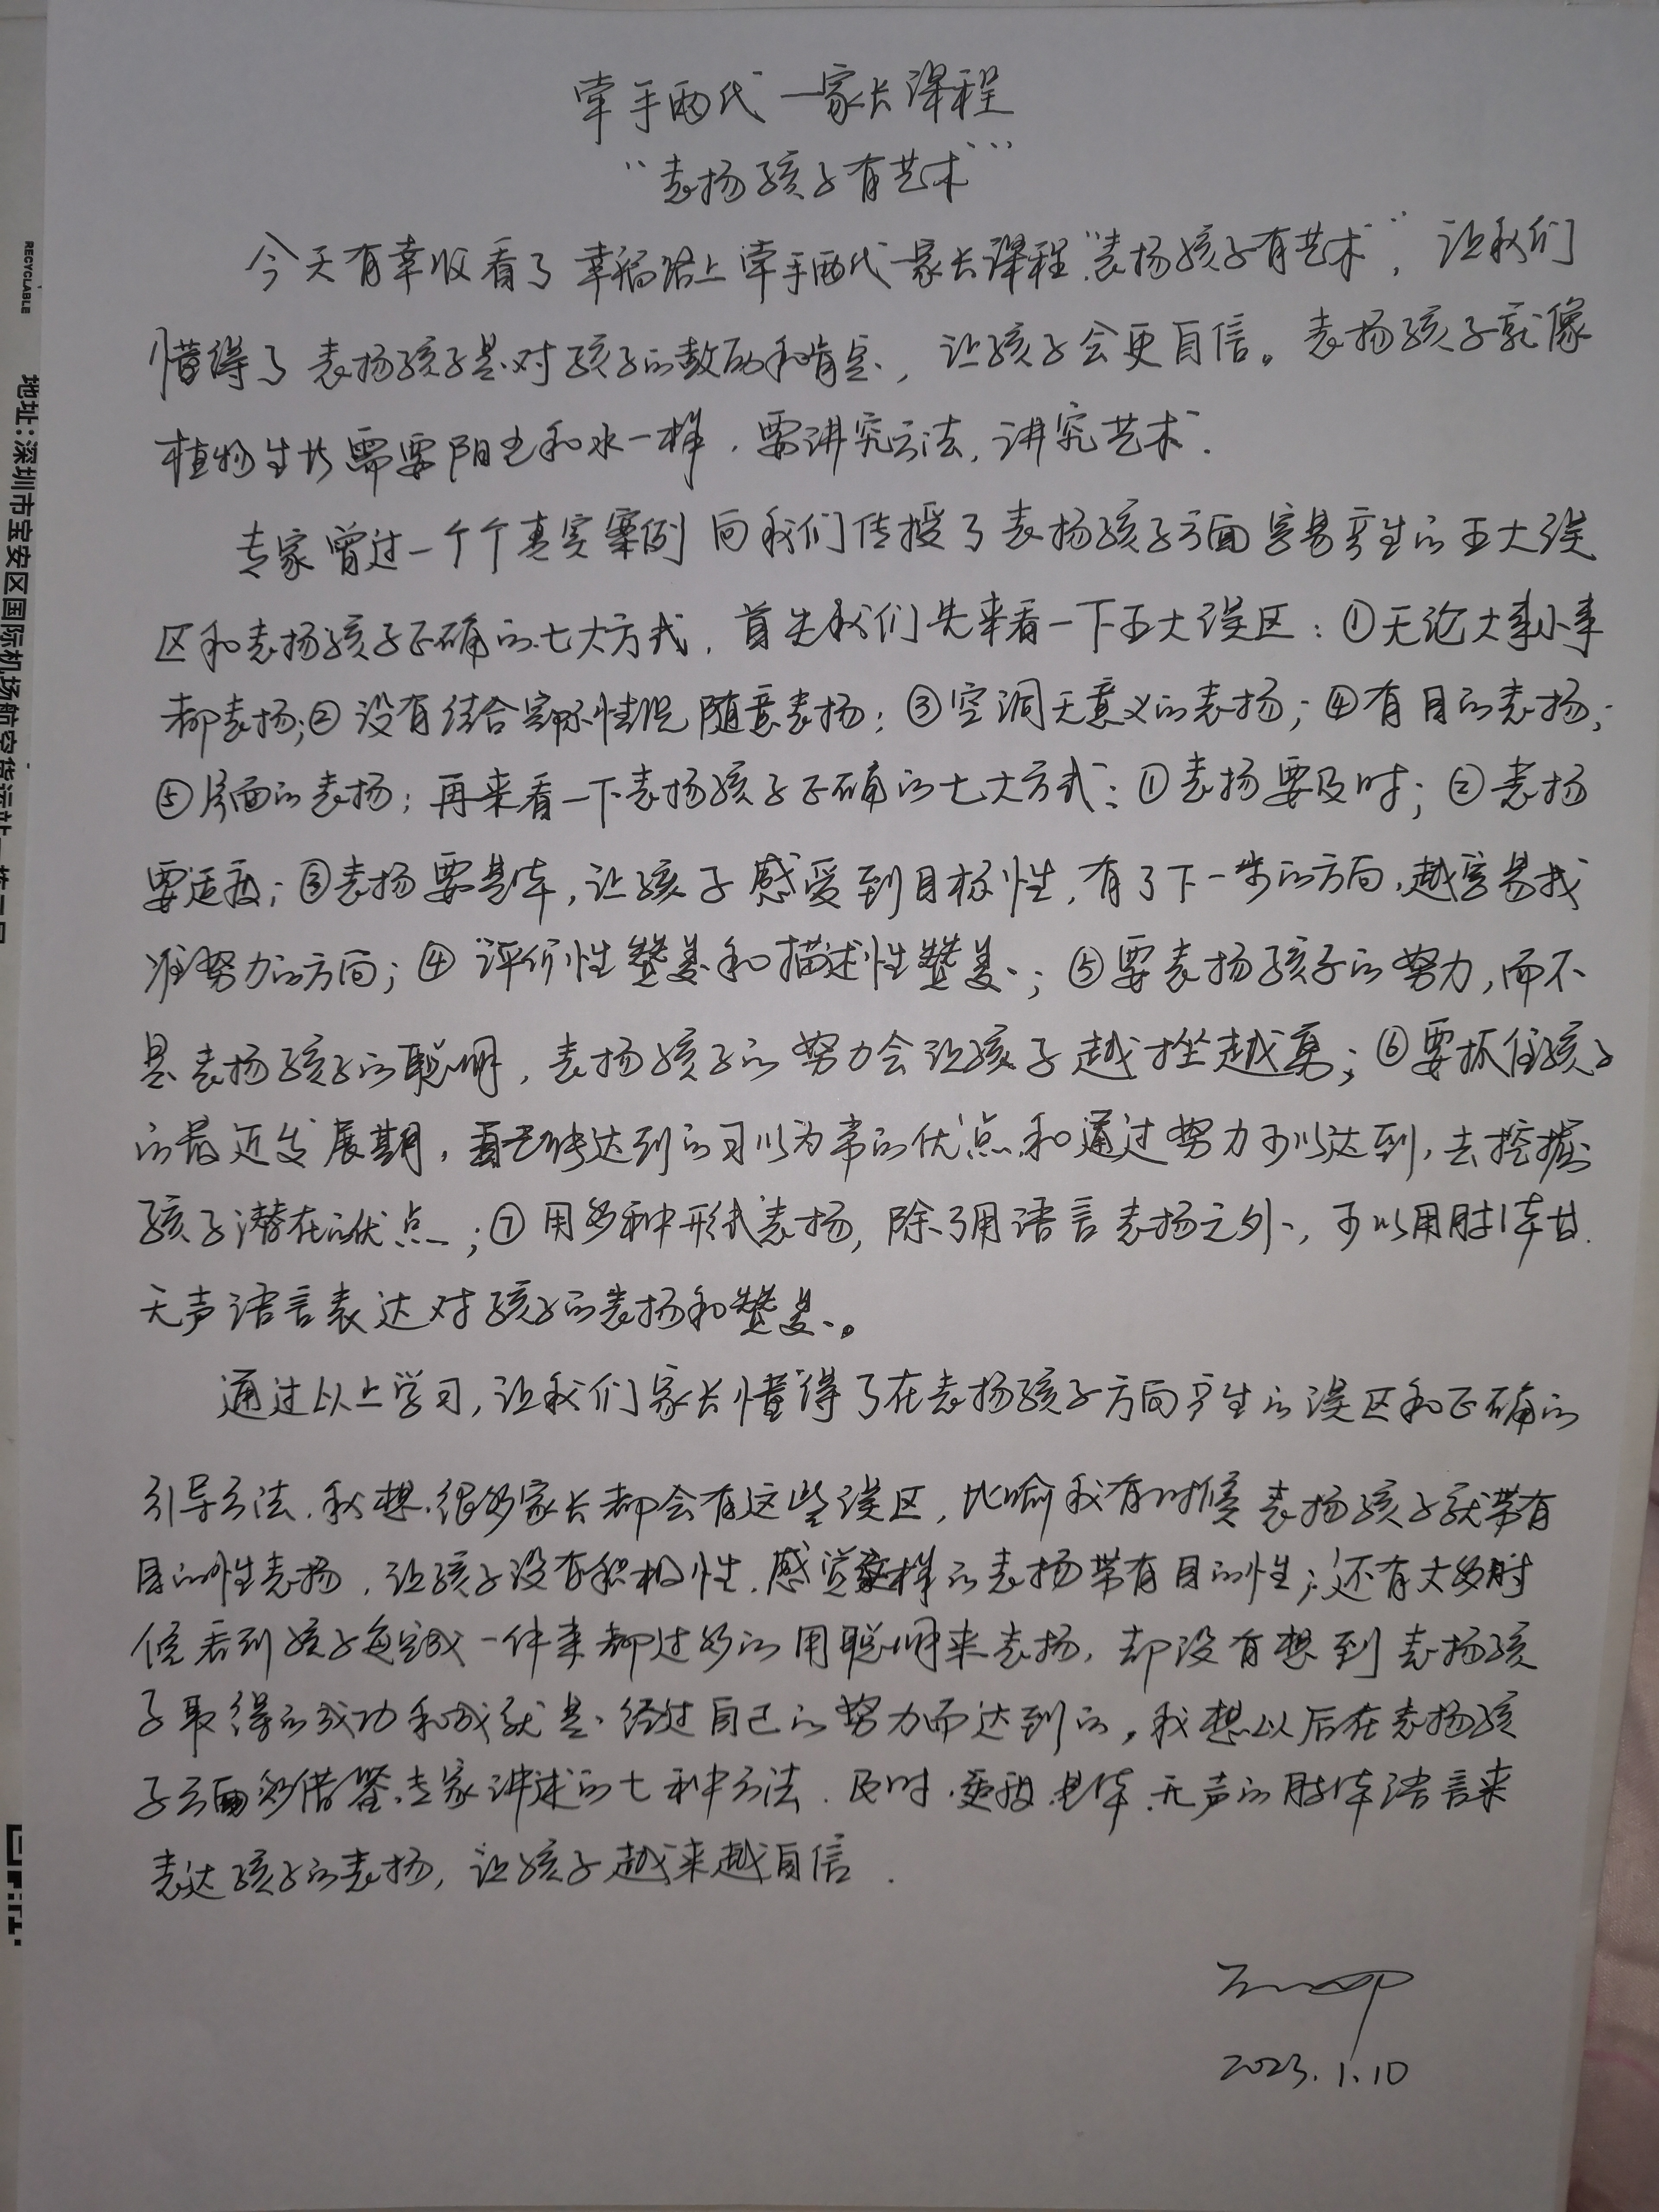 牵手两代—家长课程
“表扬孩子有艺术”
今天有幸收看了幸福路上牵手两代—家长课程“表扬孩子有艺术”，让我们
懂得了表扬孩子是对孩子的鼓励和肯定，让孩子会更自信。表扬孩子就像
植物生长需要阳光和水一样，要讲究方法，讲究艺术.
专家曾过一个个真实案例向我们传授了表扬孩子方面容易产生的五大误
区和表扬孩子正确的七大方式，首先我们先来看一下五大误区：①无论大事小事
都表扬；②没有结合实际情况随意表扬；③空洞无意义的表扬；④有目的表扬；
⑤片面的表扬；再来看一下表扬孩子正确的七大方式：①表扬要及时；②表扬
要适度；③表扬要具体，让孩子感受到目标性，有了下一步的方向，越容易找
准努力的方向；④评价性赞美和描述性赞美；⑤要表扬孩子的努力，而不
是表扬孩子的聪明，表扬孩子的努力会让孩子越挫越勇；⑥要抓住孩子
的最近发展期，达到的习以为常的优点和通过努力可以达到，去挖掘
孩子潜在的优点；⑦用多种形式表扬，除了用语言表扬之外，可以用肢体
无声语言表达对孩子的表扬和赞美。
通过以上学习，让我们家长懂得了在表扬孩子方向产生的误区和正确的
引导方法，我想很多家长都会有这些误区，比喻我有时候表扬孩子就带有
目的性表扬，让孩子没有积极性，感觉这样的表扬带有目的性；还有大多时
候看到孩子每完成一件事都过多的用聪明来表扬，却没有想到表扬孩
子取得的成功和成就是经过自己的努力而达到的，我想以后在表扬孩
子方面多借鉴专家讲述的七种方法，及时、适度、具体、无声的肢体语言来
表达孩子的表扬，让孩子越来越自信.
2023.1.10
RECYCLABLE
地址：深圳市宝安区国际机场航空货运站一